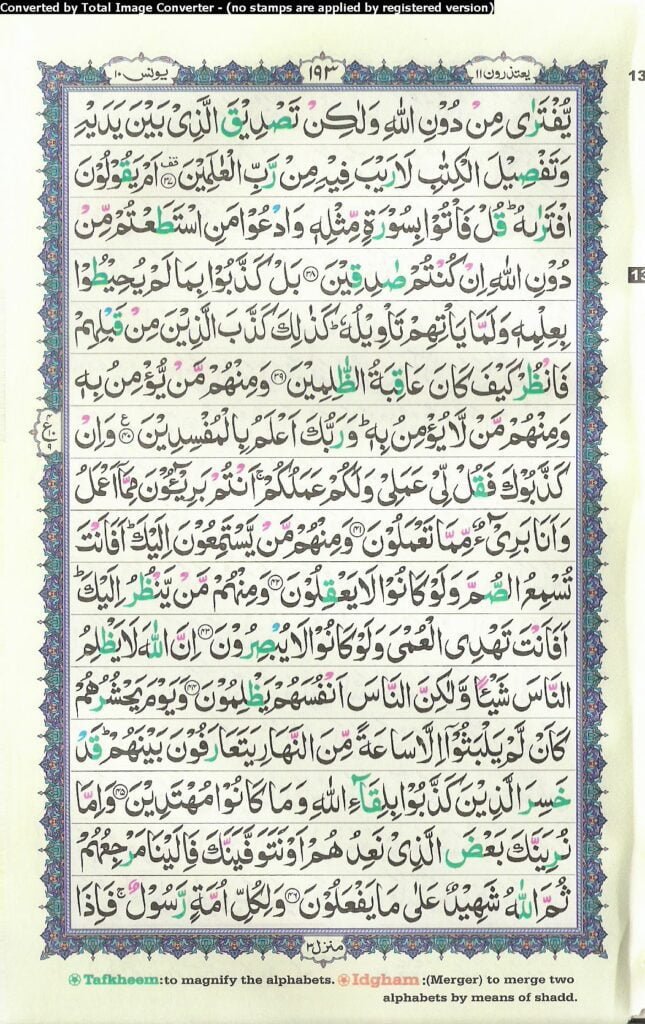 Converted by Total Image Converter - (no stamps are applied by registered version)
يعتذرون ١١
١٩٣
يونس ١٠
يُّفْتَرٰى مِنْ دُوْنِ اللّٰهِ وَلٰكِنْ تَصْدِيْقَ الَّذِىْ بَيْنَ يَدَيْهِ
وَتَفْصِيْلَ الْكِتٰبِ لَا رَيْبَ فِيْهِ مِنْ رَّبِّ الْعٰلَمِيْنَ ﴿۳۷﴾ اَمْ يَقُوْلُوْنَ
افْتَرٰىهُ ؕ قُلْ فَاْتُوْا بِسُوْرَةٍ مِّثْلِهٖ وَادْعُوْا مَنِ اسْتَطَعْتُمْ مِّنْ
دُوْنِ اللّٰهِ اِنْ كُنْتُمْ صٰدِقِيْنَ ﴿۳۸﴾ بَلْ كَذَّبُوْا بِمَا لَمْ يُحِيْطُوْا
بِعِلْمِهٖ وَلَمَّا يَاْتِهِمْ تَاْوِيْلُهٗ ؕ كَذٰلِكَ كَذَّبَ الَّذِيْنَ مِنْ قَبْلِهِمْ
فَانْظُرْ كَيْفَ كَانَ عَاقِبَةُ الظّٰلِمِيْنَ ﴿۳۹﴾ وَمِنْهُمْ مَّنْ يُّؤْمِنُ بِهٖ
وَمِنْهُمْ مَّنْ لَّا يُؤْمِنُ بِهٖ ؕ وَرَبُّكَ اَعْلَمُ بِالْمُفْسِدِيْنَ ﴿۴۰﴾ وَاِنْ
كَذَّبُوْكَ فَقُلْ لِّىْ عَمَلِىْ وَلَكُمْ عَمَلُكُمْ ۚ اَنْتُمْ بَرِيْٓـــُٔوْنَ مِمَّاۤ اَعْمَلُ
وَاَنَا بَرِىْٓءٌ مِّمَّا تَعْمَلُوْنَ ﴿۴۱﴾ وَمِنْهُمْ مَّنْ يَّسْتَمِعُوْنَ اِلَيْكَ ؕ اَفَاَنْتَ
تُسْمِعُ الصُّمَّ وَلَوْ كَانُوْا لَا يَعْقِلُوْنَ ﴿۴۲﴾ وَمِنْهُمْ مَّنْ يَّنْظُرُ اِلَيْكَ ؕ
اَفَاَنْتَ تَهْدِى الْعُمْىَ وَلَوْ كَانُوْا لَا يُبْصِرُوْنَ ﴿۴۳﴾ اِنَّ اللّٰهَ لَا يَظْلِمُ
النَّاسَ شَيْـًٔا وَّلٰكِنَّ النَّاسَ اَنْفُسَهُمْ يَظْلِمُوْنَ ﴿۴۴﴾ وَيَوْمَ يَحْشُرُهُمْ
كَاَنْ لَّمْ يَلْبَثُوْۤا اِلَّا سَاعَةً مِّنَ النَّهَارِ يَتَعَارَفُوْنَ بَيْنَهُمْ ؕ قَدْ
خَسِرَ الَّذِيْنَ كَذَّبُوْا بِلِقَآءِ اللّٰهِ وَمَا كَانُوْا مُهْتَدِيْنَ ﴿۴۵﴾ وَاِمَّا
نُرِيَنَّكَ بَعْضَ الَّذِىْ نَعِدُهُمْ اَوْ نَتَوَفَّيَنَّكَ فَاِلَيْنَا مَرْجِعُهُمْ
ثُمَّ اللّٰهُ شَهِيْدٌ عَلٰى مَا يَفْعَلُوْنَ ﴿۴۶﴾ وَلِكُلِّ اُمَّةٍ رَّسُوْلٌ ۚ فَاِذَا
منزل ٣
Tafkheem:to magnify the alphabets. Idgham :(Merger) to merge two
alphabets by means of shadd.